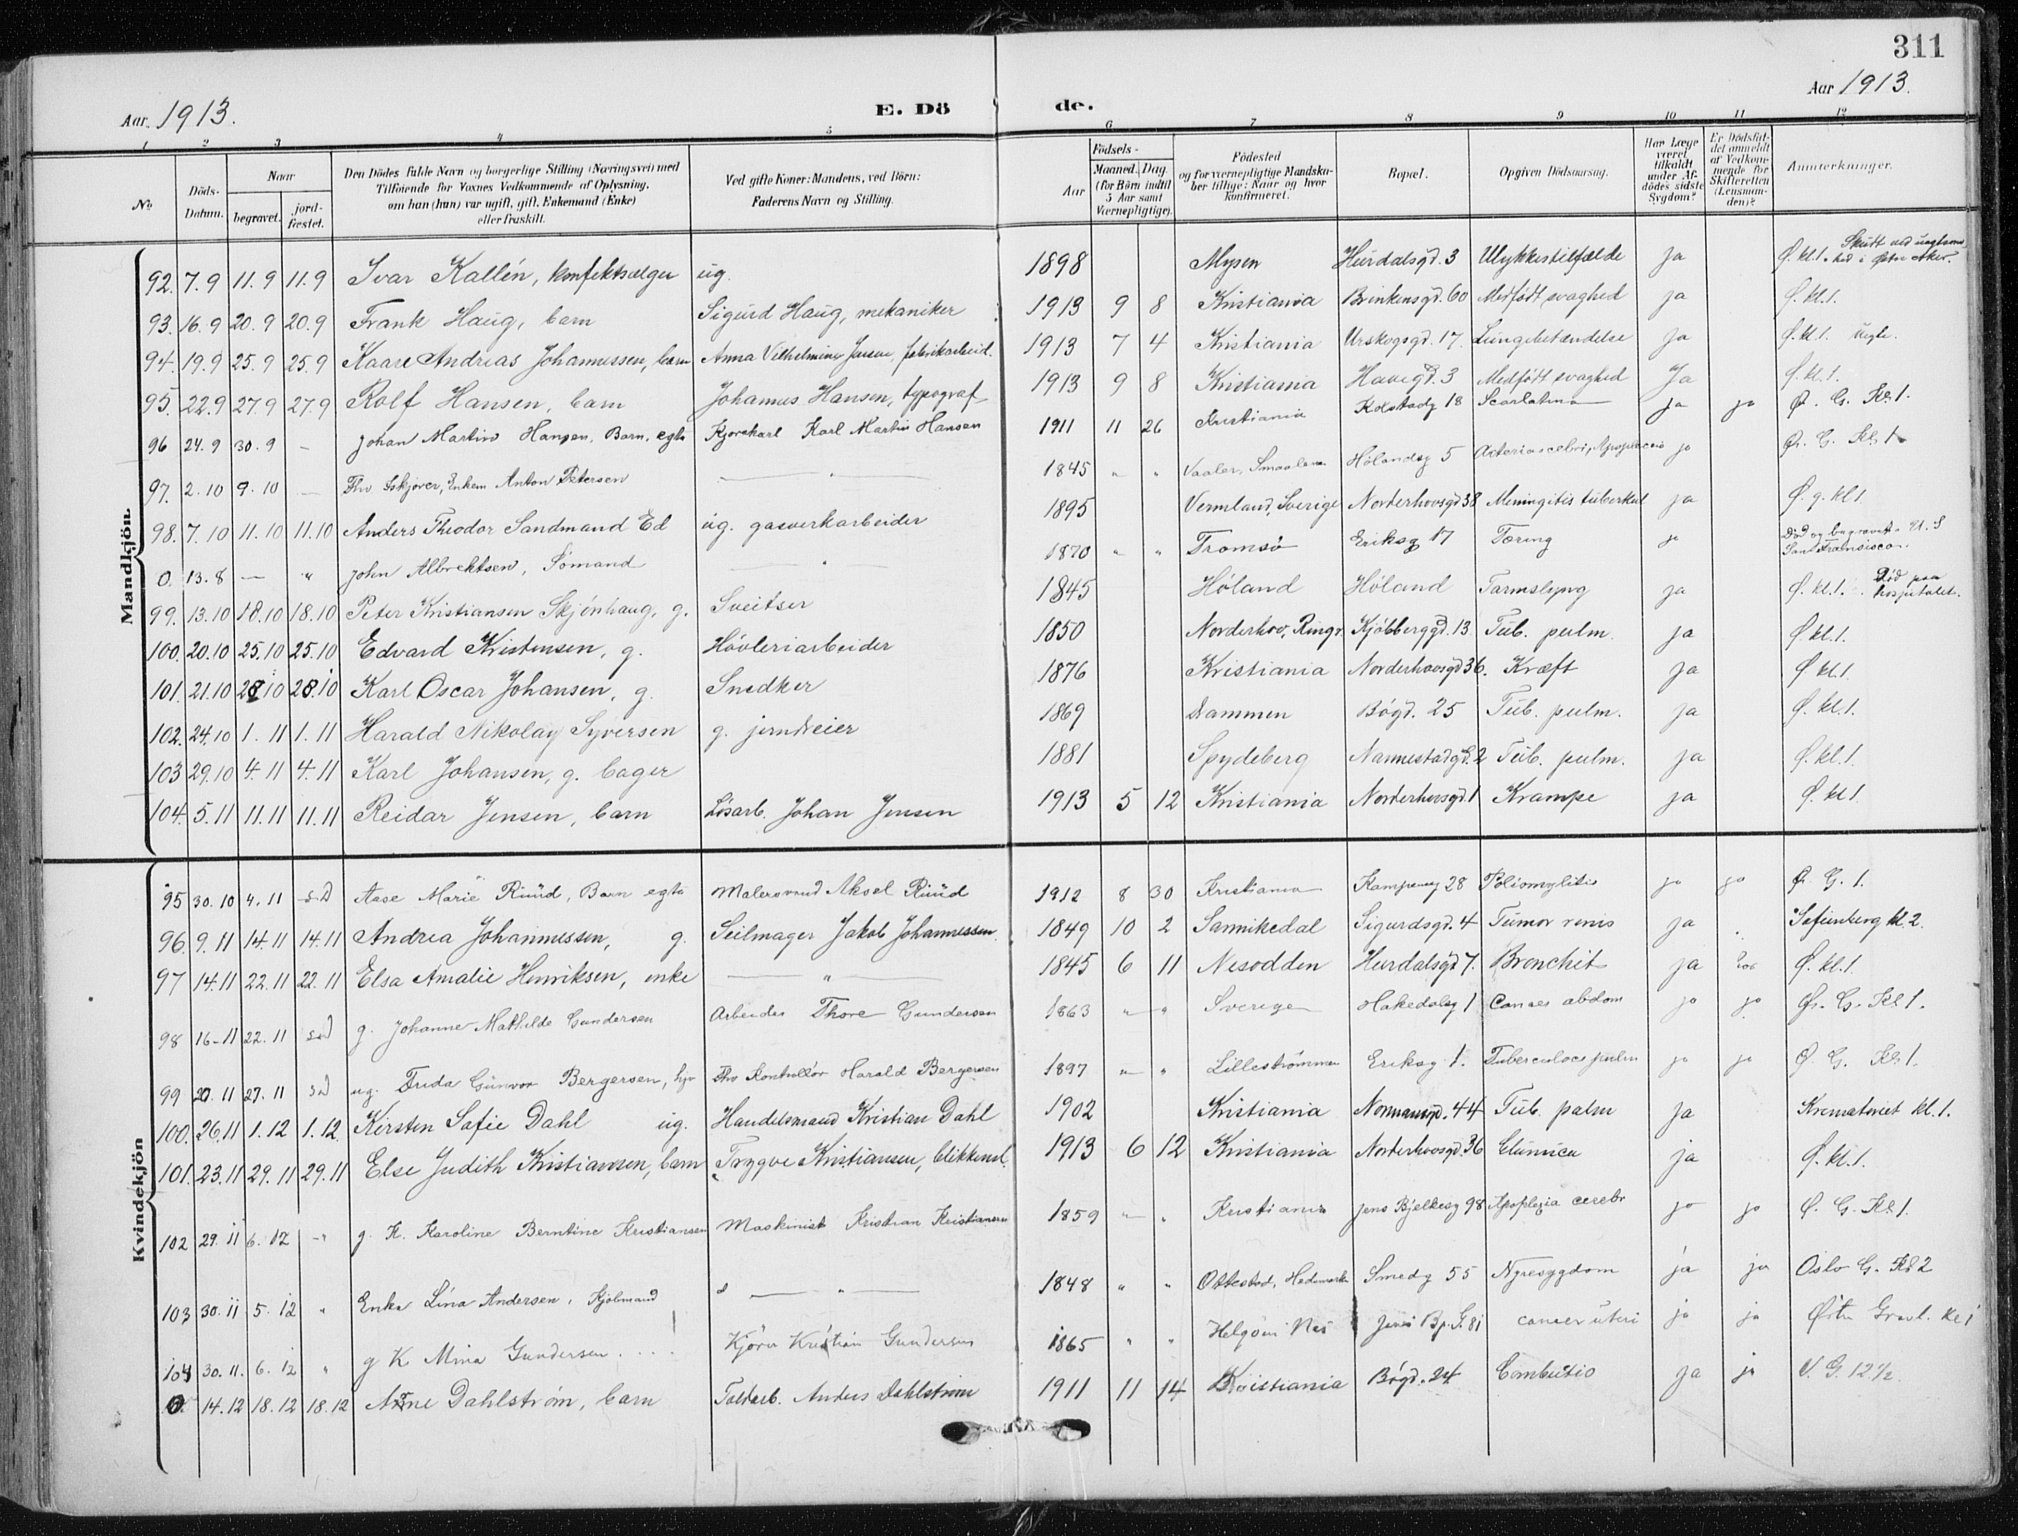 311
Aar 1913.
E. Döde.
Aar 1913.
1 2 3 4 5 6 7 8 9 10 11 12
No
Döds-Datum.
Naar
begravet.
jordfæstet.
Den Dödes fulde Navn og borgerlige Stilling (Næringsvei) med Tilföiende för Voxnes Vedkommende af Oplysning, om han (hun) var ugift, gift, Enkemand (Enke) eller fraskilt.
Ved gifte Koner: Mandens, ved Börn: Faderens Navn og Stilling.
Födsels-
Aar
Maaned. Dag
(for Börn indtil 5 Aar samt Værnepligtige).
Födested og for værnepligtige Mandskaber tillige: Naar og hvor konfirmeret.
Bopæl.
Opgiven Dödsaarsag.
Har Læge været tilkaldt under Afdödes sidste Sygdom?
Er Dödsfaldet anmeldt af Vedkommende for Skifteretten (Lensmanden)?
Anmerkninger.
Mandkjön.
92. 7.9 11.9 11.9 Ivar Kallén, konfektsælger ug. 1898 Mysen Hurdalsgd. 3 Ulykkestilfælde ja Ø. kl.1. Skudt ved
93. 16.9 20.9 20.9 Frank Haug, barn Sigurd Haug, mekaniker 1913 9 8 Kristiania Brinkensgd. 60 Medfödt svaghed ja Ø. kl.1.
94. 19.9 25.9 25.9 Kaare Andreas Johannessen, barn Anna Vilhelmine Jensen, fabrikarbeid. 1913 7 4 Kristiania Urskogsgd. 17. Lungebetændelse ja Ø. kl.1. uegte.
95. 22.9 27.9 27.9 Rolf Hansen, barn Johannes Hansen, typograf 1913 9 8 Kristiania Havegd. 3 Medfödt svaghed Ja Ø. kl.1.
96 24.9 30.9 - Johan Martin Hansen, Barn, egte Kjørekarl Karl Martin Hansen 1911 11 26 Kristiania Kolstadg 18 Scarlatina ja ja Ø. G. Kl 1.
97. 2.10 9.10 — Askjærer, Enkem Anton Petersen — " 1845 " " Vaaler, Smaalene Hölandsg 5 ja Ø. G. Kl 1.
98. 7.10 11.10 11.10 Anders Theodor Sandmand Ed ug. gasverkarbeider 1895 Vermland, Sverige Norderhovsgd 38 Meningitis tuberkul ja Ø. g. kl.1
0. 13.8 — " John Albrektsen, Sömand — " 1870 " " Tromsö Eriksg 17 Tæring ja Död og begravet i U. S San Fransisco.
99. 13.10 18.10 18.10 Peter Kristiansen Skjönhaug, g. Sveitser 1845 Höland Höland Tarmslyng ja Ø. kl.1. Död paa hospitalet.
100. 20.10 25.10 25.10 Edvard Kristensen, g. Hövleriarbeider 1850 Norderhov, Ringr. Kjölberggd. 13. Tub. pulm. ja Ø kl.1.
101. 21.10 28.10 28.10 Karl Oscar Johansen, g. Snedker 1876 Kristiania Norderhovsgd 36. Kræft ja Ø kl.1.
102. 24.10 1.11 1.11 Harald Nikolay Syversen g. jerndreier 1869 Drammen Bógd. 25 Tub. pulm. ja Ø. kl.1.
103 29.10 4.11 4.11 Karl Johansen, g. bager 1881 Spydeberg Nannestadgd. 2 Tub. pulm. ja Ø. kl.1.
104. 5.11 11.11 11.11 Reidar Jensen, barn Lösarb. Johan Jensen 1913 5 12 Kristiania Norderhovsgd. 1 Krampe ja Ø. kl 1.
Kvindekjön
95 30.10 4.11 sd Aase Marie Ruud, Barn egte Malersvend Aksel Ruud 1912 8 30 Kristiania Kampeng 28 Poliomylitis ja ja Ø. G. 1.
96. 9.11 14.11 14.11 Andrea Johannessen, g. Seilmager Jakob Johannessen. 1849 10 2 Sannikedal Sigurdsgd. 4 Tumor renis ja Sofienberg kl. 2.
97 14.11 22.11 22.11 Elsa Amalie Henriksen, enke — " 1845 6 11 Nesodden Hurdalsgd 7. Bronchit ja Ø. kl.1.
98 16-11 22.11 sd g. Johanne Mathilde Gundersen Arbeider Thore Gundersen 1863 " " Sverige Hakedalsg 1 Cancer abdom ja ja Ø. G. Kl 1.
99 20.11 27.11 sd ug. Frida Gunvor Bergersen, Kontrollør Harald Bergersen 1897 " " Lillestrømmen Eriksg 1. Tuberculose pulm ja ja Ø. G. Kl 1.
100. 26.11 1.12 1.12. Kirsten Sofie Dahl ug. Handelsmand Kristian Dahl 1902 Kristiania Normannsgd. 44 Tub. pulm ja Krematoriet kl.1.
101. 23.11 29.11 29.11 Else Judith Kristiansen, barn Trygve Kristiansen, blikkensl. 1913 6 12 Kristiania Norderhovsgd. 36 ja Ø. kl.1.
102 29.11 6.12 -" g. K. Karoline Berntine Kristiansen Maskinist Kristian Kristiansen 1859 " " Kristiania Jens Bjelkesg 98 Apoplexia cerebr ja ja Ø. G. Kl 1.
103 30.11 5.12 " Enke Lina Andersen, Kjöbmand — " 1848 " " Ottestad, Hedemarken Smedg 55 Nyresygdom ja ja Oslo G. Kl 2
104 30.11. 6.12 " g K Mina Gundersen Kjörer Kristian Gundersen 1865 " " Helgöen Nes Jens Bj. G. 81 cancer uteri ja ja Østr Gravl. kl 1
0. 14.12 18.12 18.12 Arne Dahlström, barn Toldarb. Anders Dahlström 1911 11 14 Kristiania Bógd. 24 Combustio ja ja V. G. 12½